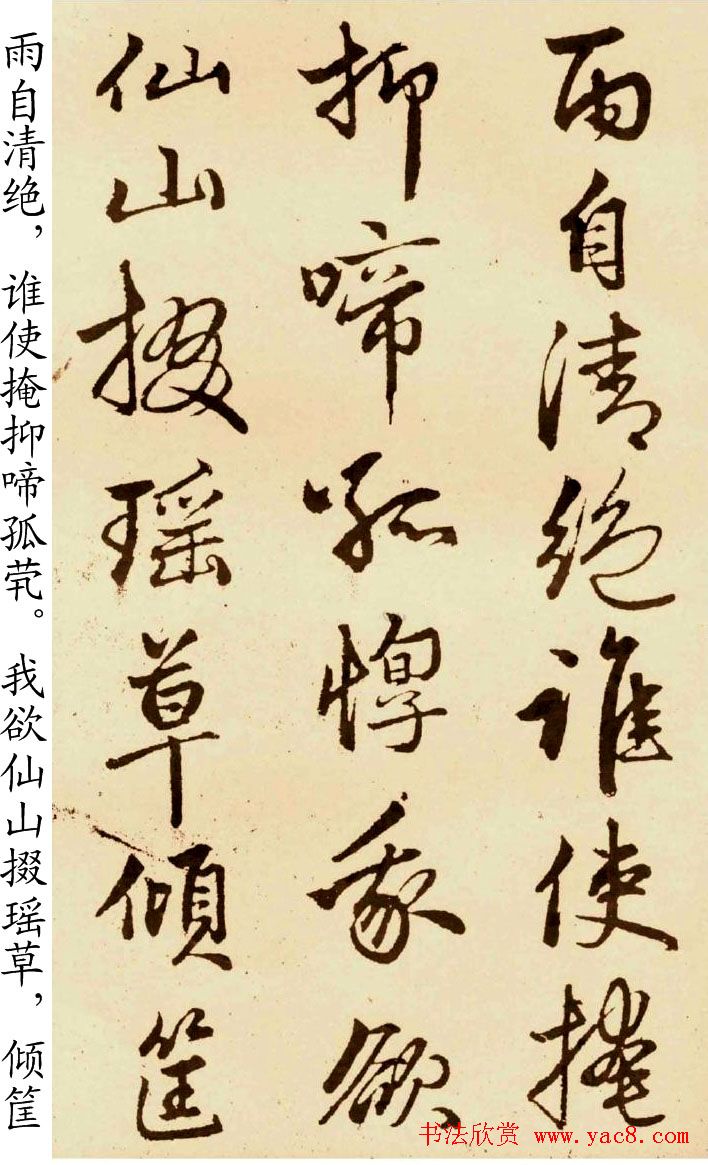 雨自清絶誰使掩
抑啼孤惸我欲
仙山掇瑶草傾筐
雨自清绝，谁使掩抑啼孤茕。我欲仙山掇瑶草，倾筐
书法欣赏 www.yac8.com